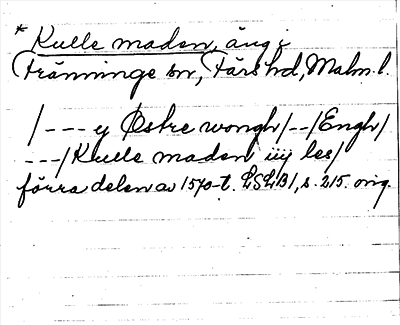 * Kulle maden, äng i
Tränninge sn, Färs hd, Malm. l.
/--- y Østre wongh/--/Engh/
---/Kulle maden iiij les/
förra delen av 1570-t. LSLB1, s. 215. orig.